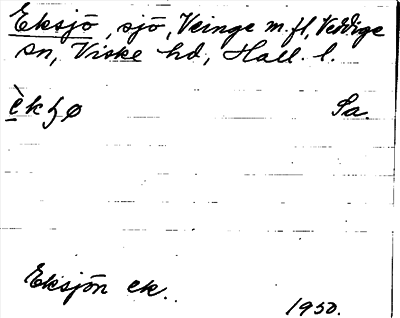 Eksjö, sjö, Veinge m.fl, Veddige
sn, Viske hd, Hall. l.
èkꞩø Sa.
Eksjön ek.
1950.